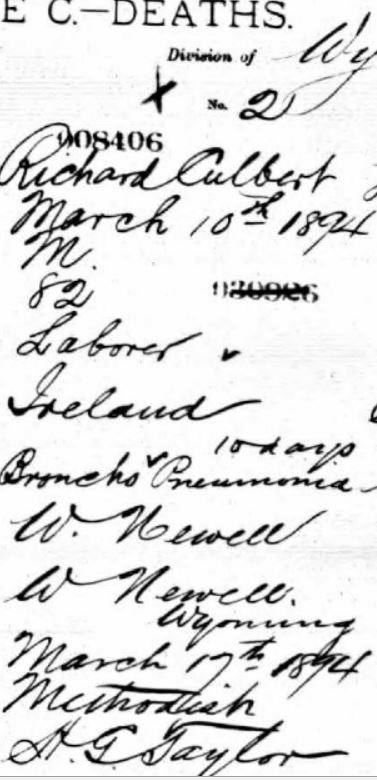 E C.—DEATHS.
Division of Wy
No. 2
008406
Richard Culbert
March 10th 1894
M.
82
030926
Laborer
Ireland
10 days
Broncho Pneumonia
W. Newell
W Newell.
Wyoming
March 17th 1894
Methodish
H. G Taylor